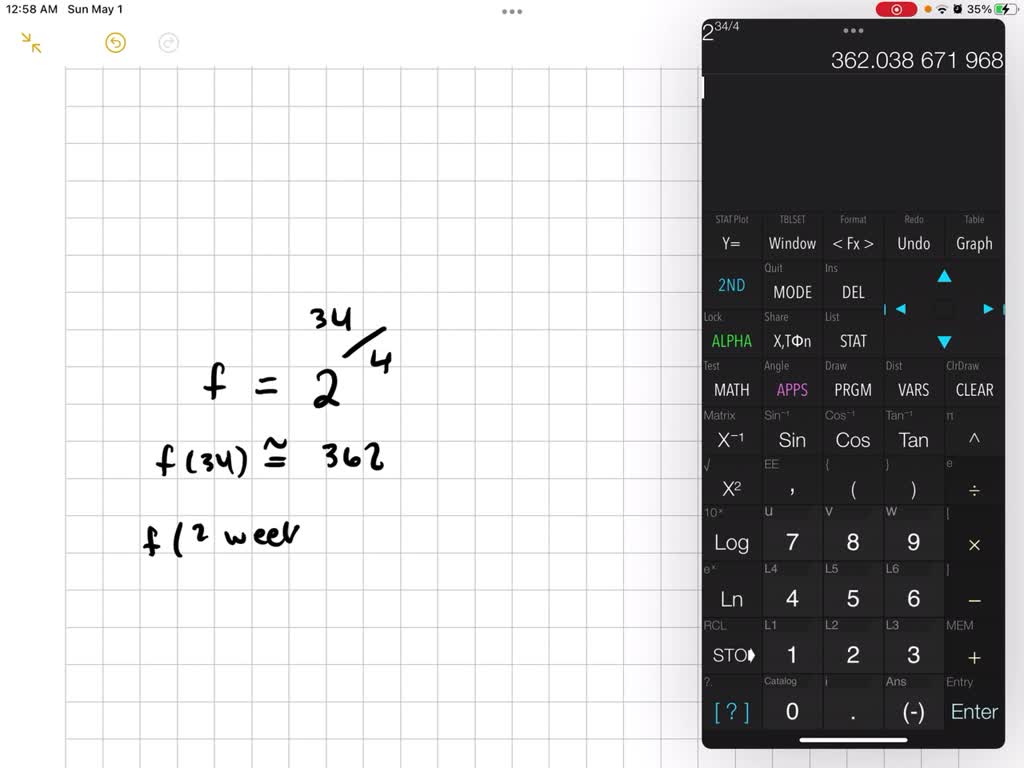 12:58 AM Sun May 1
35%
2^34/4
362.038 671 968
STAT Plot TBLSET Format Redo Table
Y= Window < Fx > Undo Graph
Quit Ins
2ND MODE DEL
Lock Share List
ALPHA X,TΦn STAT
Test Angle Draw Dist ClrDraw
MATH APPS PRGM VARS CLEAR
Matrix Sin⁻¹ Cos⁻¹ Tan⁻¹ π
X⁻¹ Sin Cos Tan ^
√ EE { } e
X² , ( ) ÷
10ˣ u v w [
Log 7 8 9 ×
eˣ L4 L5 L6 ]
Ln 4 5 6 −
RCL L1 L2 L3 MEM
STO 1 2 3 +
?. Catalog i Ans Entry
[ ? ] 0 . (-) Enter
f = 2^34/4
f(34) ≅ 362
f(2 week